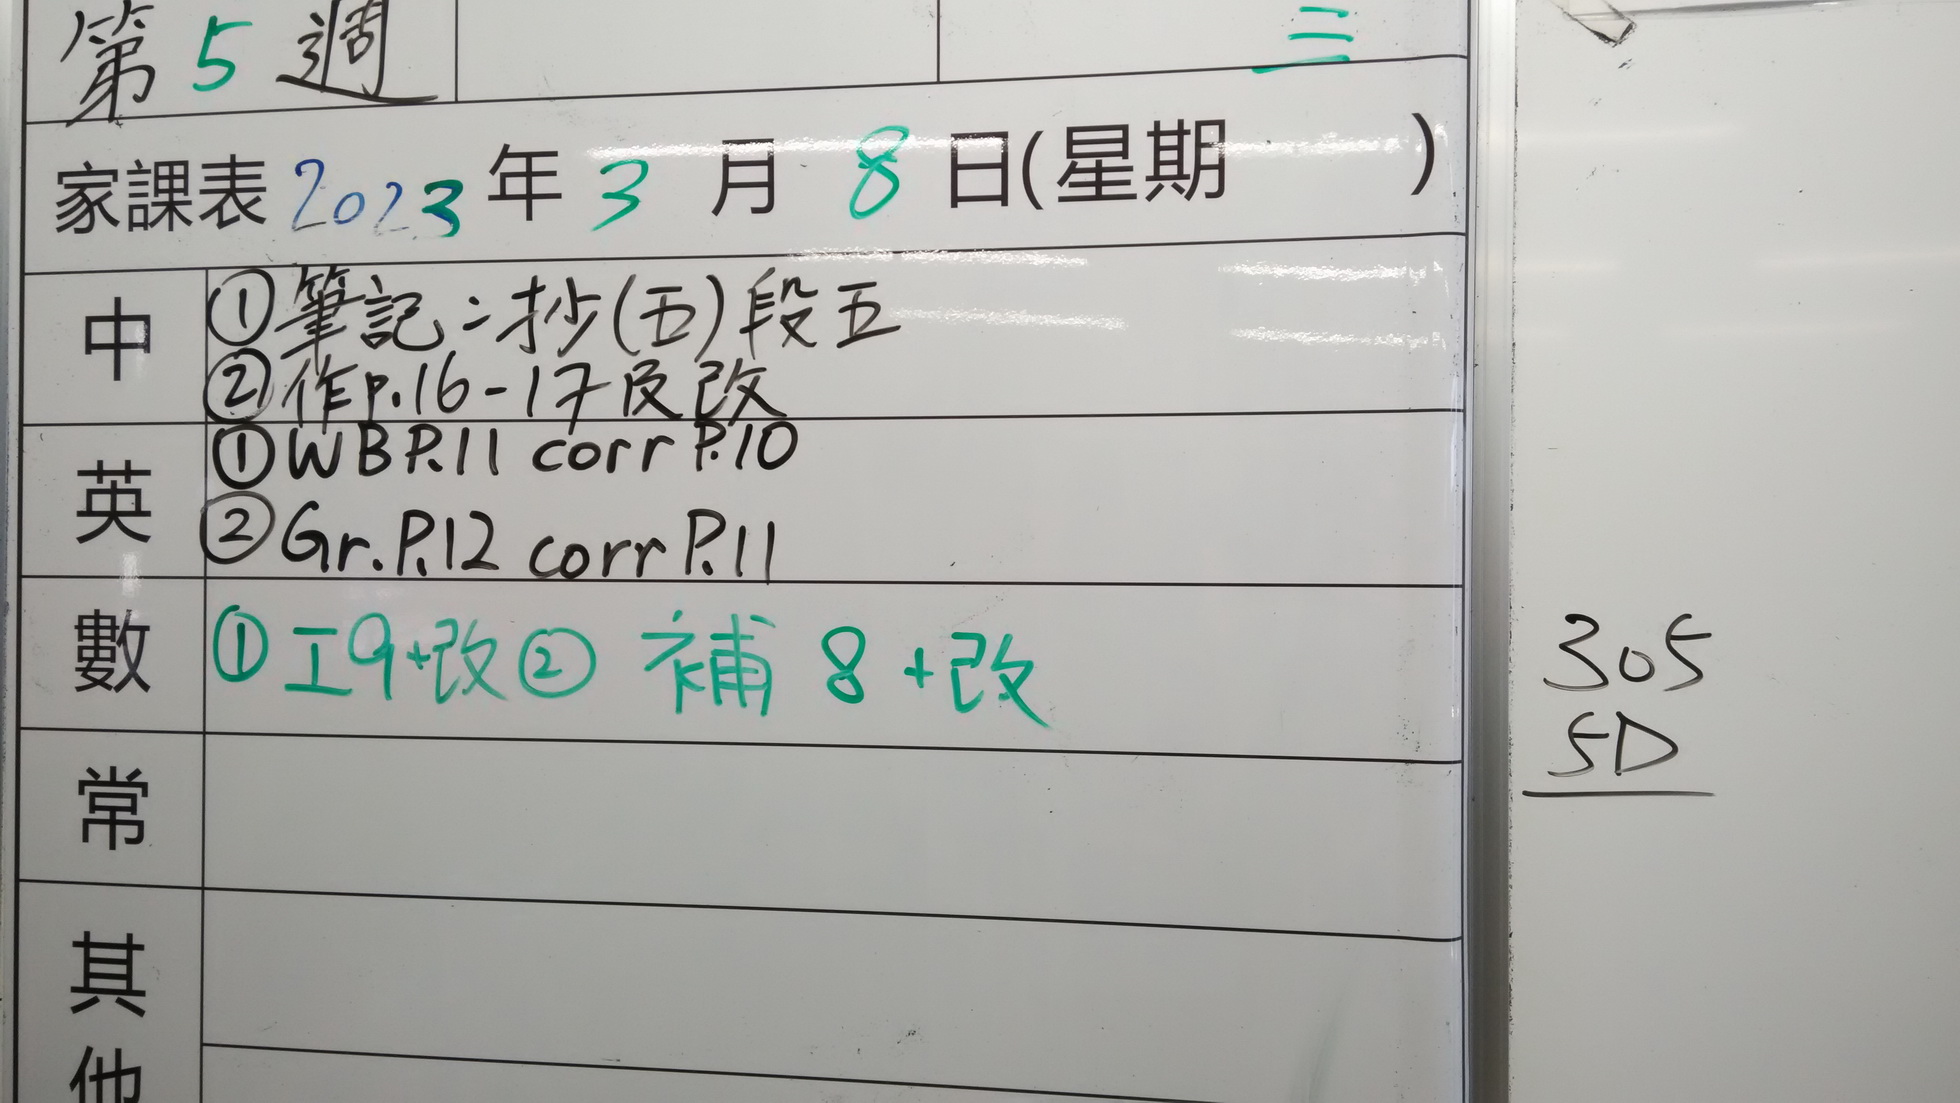 第5週
三
家課表 2023年3月8日(星期 )
中
①筆記：抄(五)段五
②作p.16-17及改
英
①WB P.11 corr P.10
②Gr. P.12 corr P.11
數
①工9+改 ② 補8+改
常
其
他
305
5D